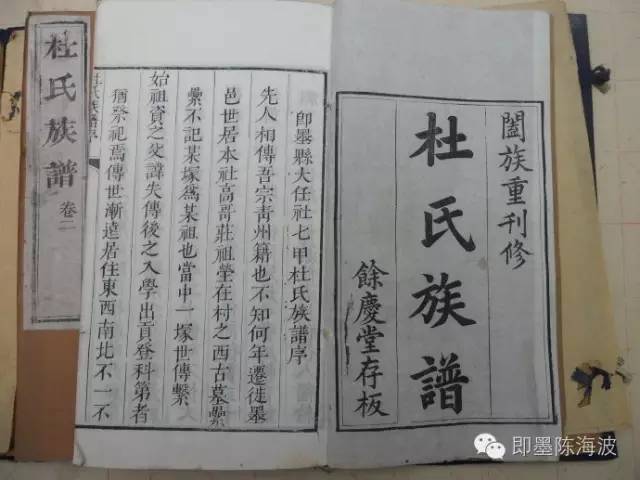 闔族重刊修
杜氏族譜
餘慶堂存板
即墨縣大任社七甲杜氏族譜序
先人相傳吾宗青州籍也不知何年遷徙墨
邑世居本社高哥莊祖塋在村之西古墓纍
纍不記某塚為某祖也當中一塚世傳繫
始祖資之父諱失傳後之入學出貢登科第者
猶祭祀焉傳世漸遠居住東西南北不一不
杜氏族譜 卷二
即墨陈海波